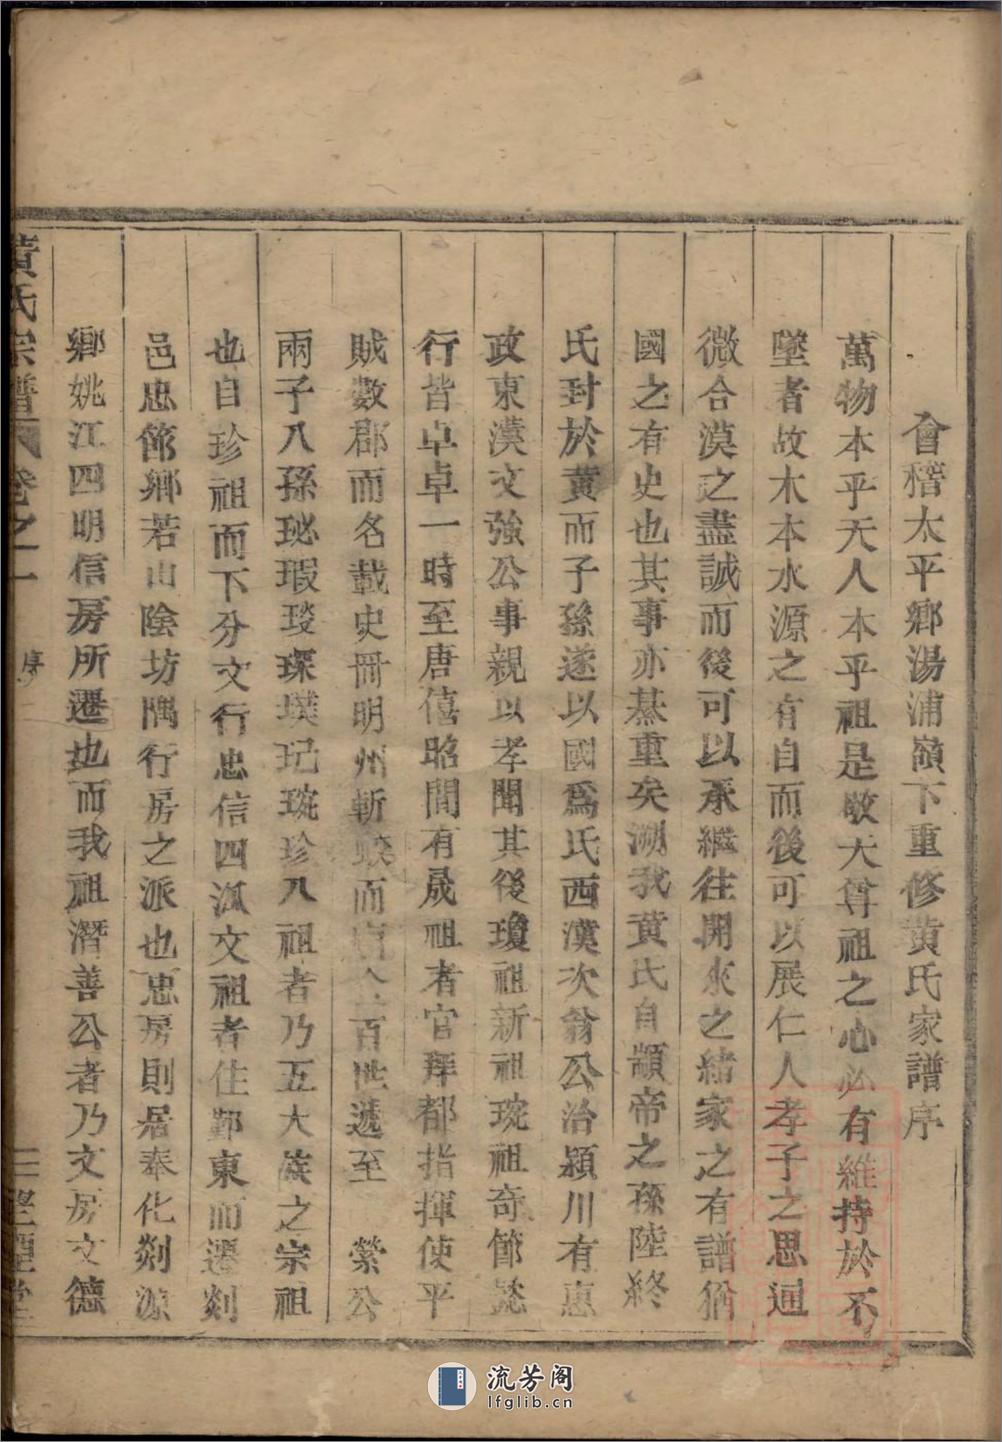 會稽太平鄉湯浦嶺下重修黄氏家譜序
萬物本乎天人本乎祖是敬天尊祖之心必有維持於不
墜者故木本水源之有自而後可以展仁人孝子之思通
微合漠之盡誠而後可以承繼往開來之緒家之有譜猶
國之有史也其事亦綦重矣溯我黄氏自顓帝之孫陸終
氏封於黄而子孫遂以國爲氏西漢次翁公治潁川有惠
政東漢文強公事親以孝聞其後瓊祖新祖琬祖奇節懿
行皆卓卓一時至唐僖昭間有晟祖者官拜都指揮使平
賊數郡而名載史冊明州斬蛟而百世遞至 縈公
兩子八孫珌瑕琰琛璞玘琬珍八祖者乃五大族之宗祖
也自珍祖而下分文行忠信四派文祖者住鄞東而遷剡
邑忠節鄉若山陰坊隅行房之派也忠房則居奉化剡源
鄉姚江四明信房所遷也而我祖潛善公者乃文房文德
黄氏宗譜 卷之一 序 二